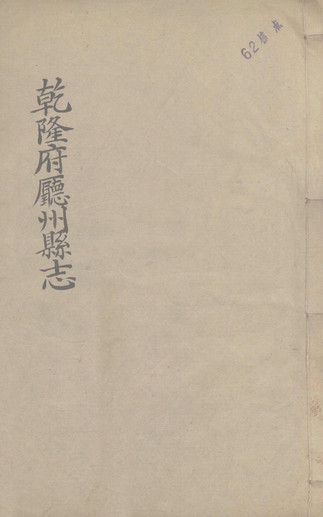 乾隆府廳州縣志
62